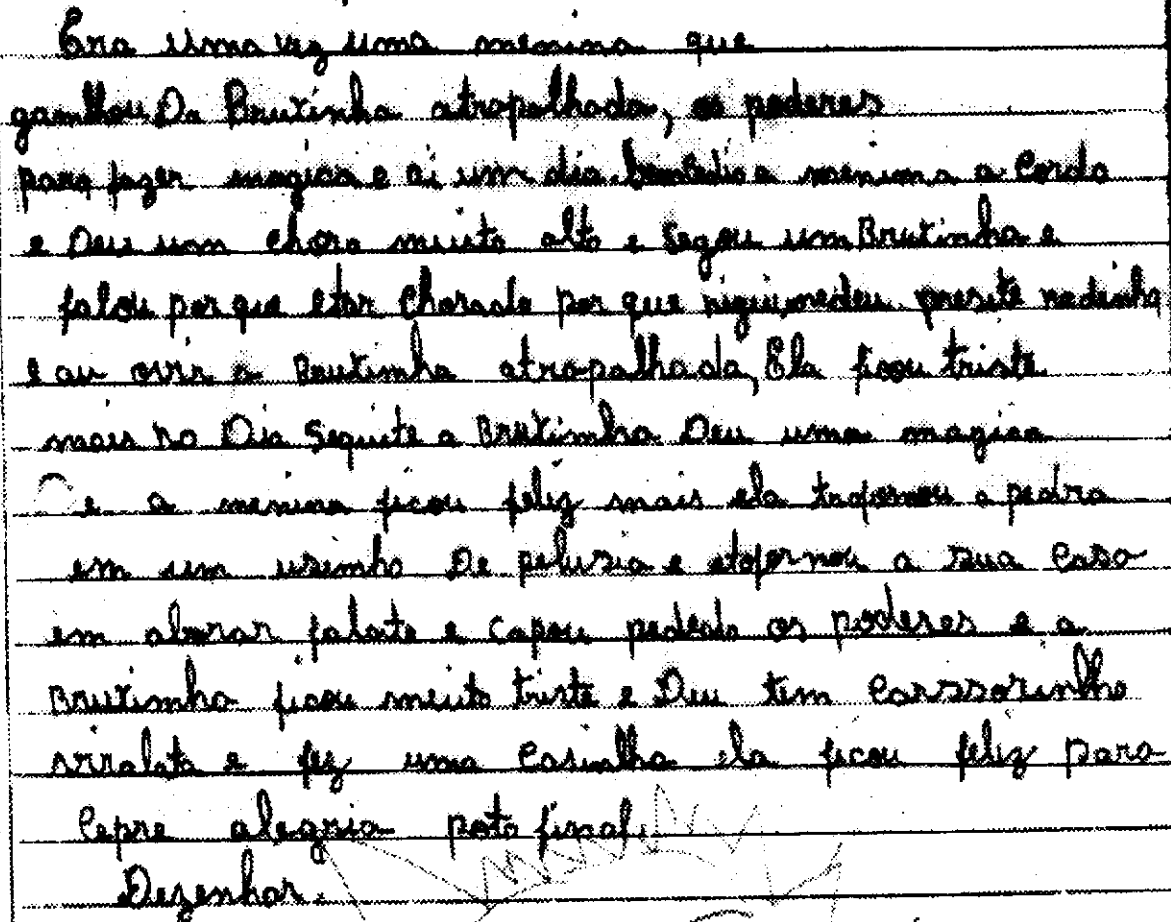 Era uma vez uma menina que
ganhou Da Brutinha atrapalhada, os poderes
para fazer magica e ai um dia a menina a Cordo
e Deu um choro muito alto e Segou um Brutinha e
falou por que etar chorado por que niguiu medeu presite nadinha
e au ovir a Brutinha atrapalhada, Ela ficou triste
mais no Dia Seguite a Brutinha Deu uma magica
e a menina ficou feliz mais ela trafornou a pedra
em um usinho De pelusia e atofornou a sua Casa
em alvorar falate e capou pededo os poderes e a
Brutinha ficou muito triste e Deu um Carssorinho
viralata e fez uma Casinlha ela ficou feliz para
Cepre alegria poto final.
Dezenhar.